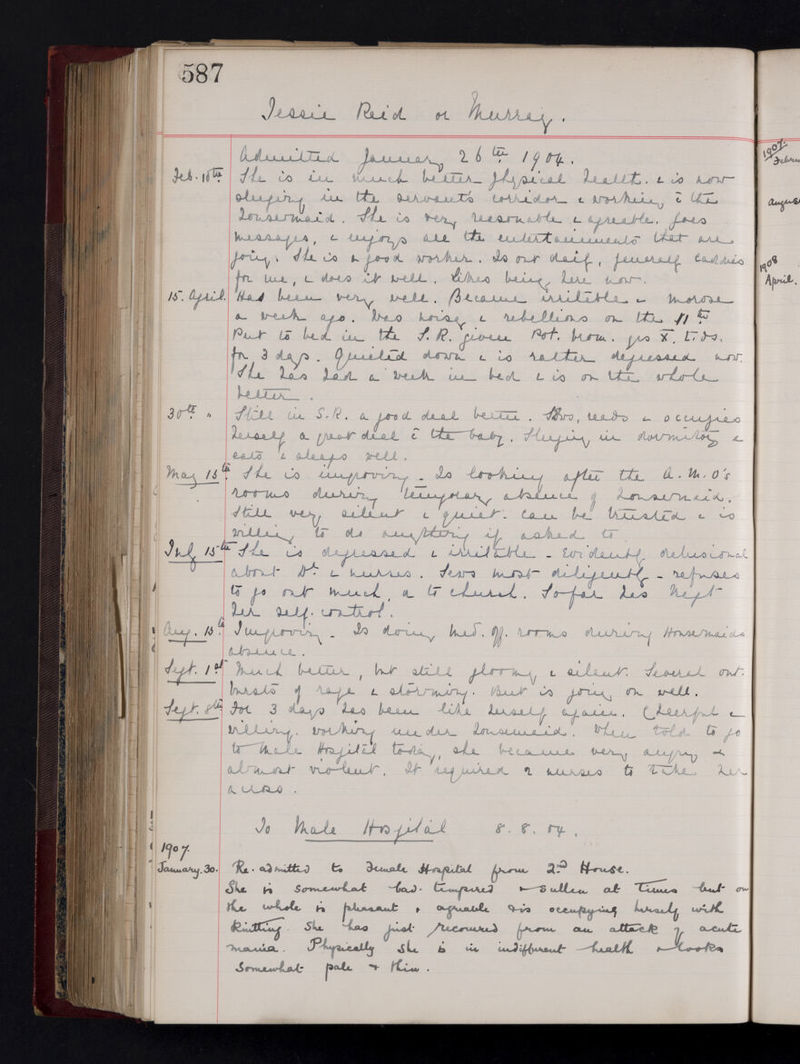 587
Jessie Reid or Murray.
Admitted January 26th 1904.
Feb. 10th She is in much better physical health. & is now
sleeping in the servants corridor & working c̄ the
housemaid. She is very reasonable & agreable. Goes
messages, & enjoys all the entertainments that are
going. She is a good worker. Is out daily, generally caddies
for me, & does it well. Likes being here now.
15. April. Had been very well. Became irritable & morose
a week ago. Was noisy & rebellious on the 11th
Put to bed in the S.R. given Pot. brom. grs X. t.ds.
for 3 days. Quieted down & is rather depressed now.
She has had a week in bed & is on the whole
better.
30th " Still in S.R. a good deal better. Sews, reads & occupies
herself a great deal c̄ the baby. Sleeping in dormitory &
eats & sleeps well.
May 15th She is improving. Is looking after the A.M.O's
rooms during temporary absence of housemaid.
Still very silent & quiet. Can be trusted & is
willing to do anything if asked to
July 15th She is depressed & irritable - Evidently delusional
about Dr. & nurses. Sews most diligently - refuses
to go out much, or to church. So far has kept
her self-control.
Aug. 15th Improving. Is doing Med. Off. rooms during Housemaids
absence.
Sept. 1st Much better, but still gloomy & silent. Several out-
bursts of rage & storming. But is going on well.
Sept. 8th For 3 days has been like herself again. Cheerful &
willing. working under housemaid. When told to go
to Male Hospital today, she became very angry &
almost violent. It required 2 nurses to take her
across.
To Male Hospital 8. 8. 04.
1907.
January. 30. Re-admitted to Female Hospital from 2nd House.
She is somewhat bad-tempered & sullen at times but on
the whole is pleasant & agreable & is occupying herself with
knitting. She has just recovered from an attack of acute
mania. Physically she is in indifferent health & looks
somewhat pale & thin.
1907
Febru
Augus
1908
April.